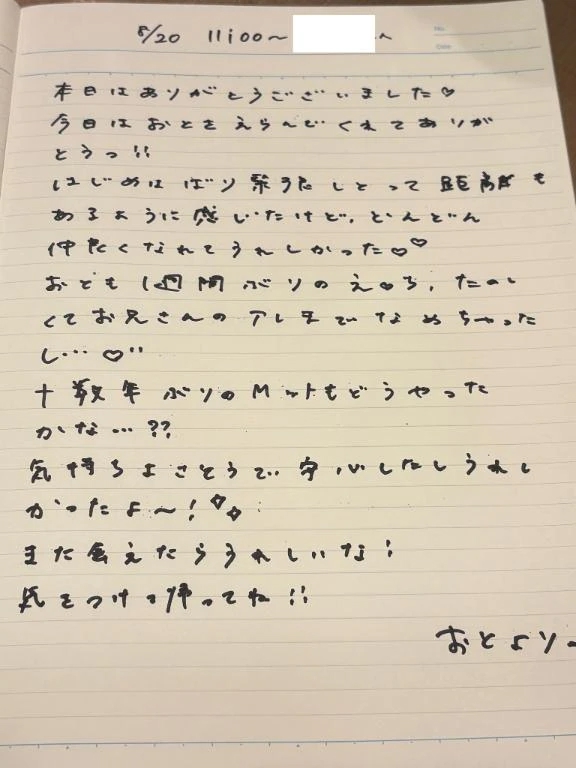 8/20 11:00〜
No.
Date
本日はありがとうございました♡
今日はおとをえらんでくれてありが
とうっ!!
はじめはばり緊張したしとって距離も
あるように感じたけど、どんどん
仲良くなれてうれしかった♡♡
おとも1週間ぶりのえ♡ち、たのし
くてお兄さんのアレまでなめちゃった
し…♡!!
十数年ぶりのMットもどうやった
かな…??
気持ちよさそうで安心したしうれし
かったよ〜!
また会えたらうれしいな!
気をつけて帰ってね!!
おとより